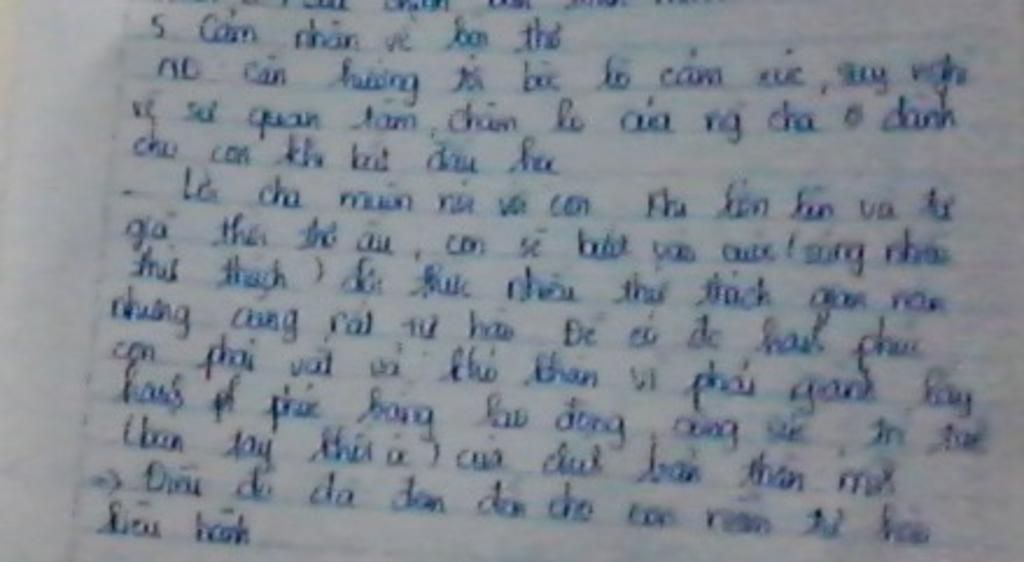 5 Cảm nhận về bài thơ
ND cần hướng tới bộc lộ cảm xúc, suy nghĩ
về sự quan tâm, chăm lo của ng cha dành
cho con khi bắt đầu
- Lời cha muốn nói với con Khi lớn lên và từ
giã thời thơ ấu, con sẽ bước vào cuộc sống nhiều
thử thách) đời thực nhiều thử thách gian nan
nhưng cũng rất tự hào Để có đc hạnh phúc
con phải vất vả khó khăn vì phải giành lấy
hạnh phúc bằng lao động, công sức, trí tuệ
(bàn tay khối óc) của chính bản thân mình
=> Điều đó đã đem đến cho con niềm tự hào
kiêu hãnh